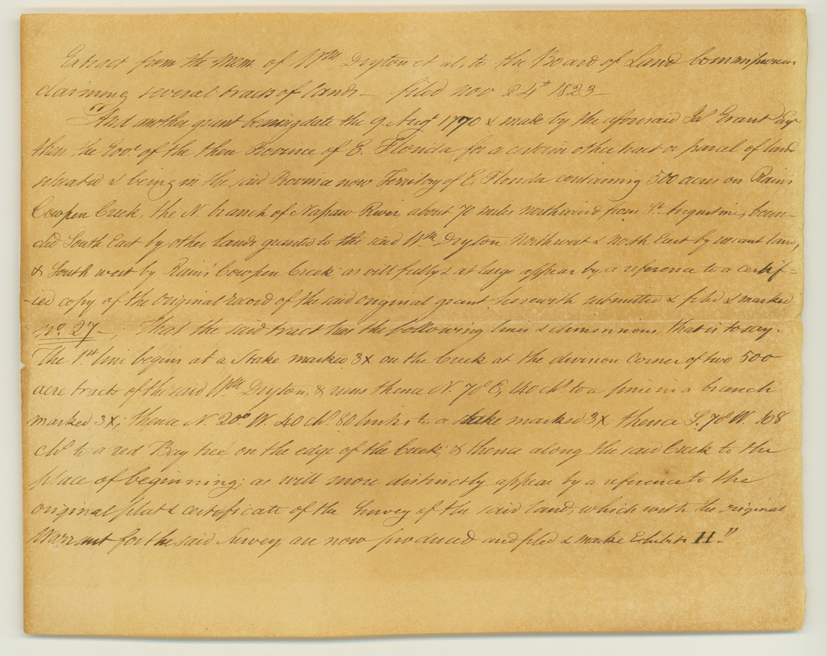 Extract from the Mem. of Wm Drayton et al, to the Board of Land Commissioners
claiming several tracts of land — filed Nov 24th 1823 —
"And another grant bearing date the 9 Augt 1770 & made by the aforesaid Jas Grant Esqr
then the Govr of the then Province of E. Florida for a certain other tract or parcel of land
situated & being in the said Province now Territory of E. Florida containing 500 acres on Rains
Cowpen Creek, the N. branch of Nassau River about 70 miles northward from St. Augustine, boun-
ded South East by other lands granted to the said Wm Drayton North west & North East by vacant land,
& South west by Rain's Cowpen Creek: as will fully & at large appear by a reference to a certif-
-ied copy of the Original record of the said original grant herewith submitted & filed & marked
No. 27 — That the said tract has the following lines & dimensions, that is to say —
The 1st line begins at a stake marked 3X on the Creek at the division Corner of two 500
acre tracts of the said Wm Drayton, & runs thence N. 70 E, 140 chs to a pine in a branch
marked 3X; thence N. 20 W. 40 chs 80 links to a stake marked 3X thence S. 70 W. 108
chs to a red Bay tree on the edge of the Creek, & thence along the said Creek to the
place of beginning; as will more distinctly appear by a reference to the
original plat & certificate of the Survey of the said land, which with the original
Warrant for the said Survey are now produced and filed & marked Exhibit H."